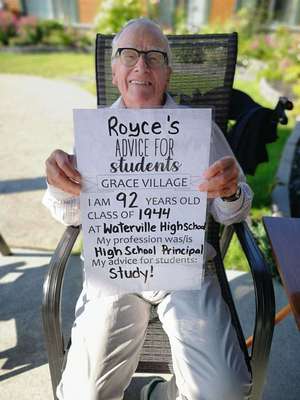 Royce's
ADVICE FOR
students
GRACE VILLAGE
I AM 92 YEARS OLD
CLASS OF 1944
AT Waterville HighSchool
My profession was/is
High School Principal
My advice for students:
Study!